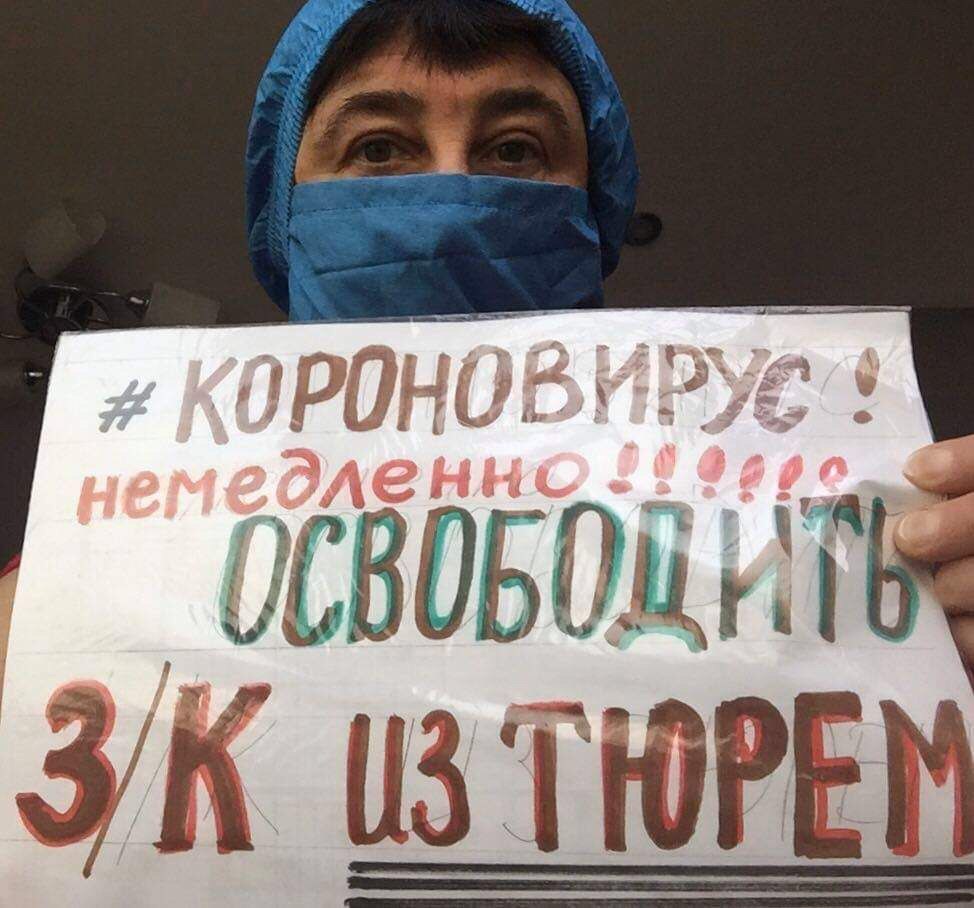 # КОРОНОВИРУС!
немедленно!!!!!!
ОСВОБОДИТЬ
З/К из ТЮРЕМ